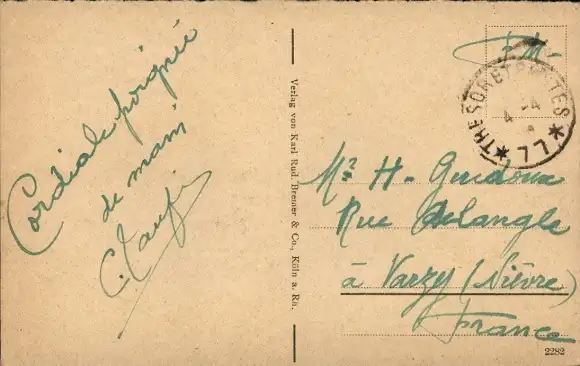 Cordiale poignée
de main
Verlag von Karl Rud. Bremer & Co., Köln a. Rh.
F M
TRESOR ET POSTES
* 77 *
Mr H. Guidoux
Rue Delangle
à Varzy (Nièvre)
France
2282